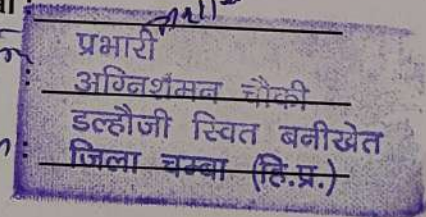 प्रभारी
अग्निशमन चौकी
डल्हौजी स्थित बनीखेत
जिला चम्बा (हि.प्र.)